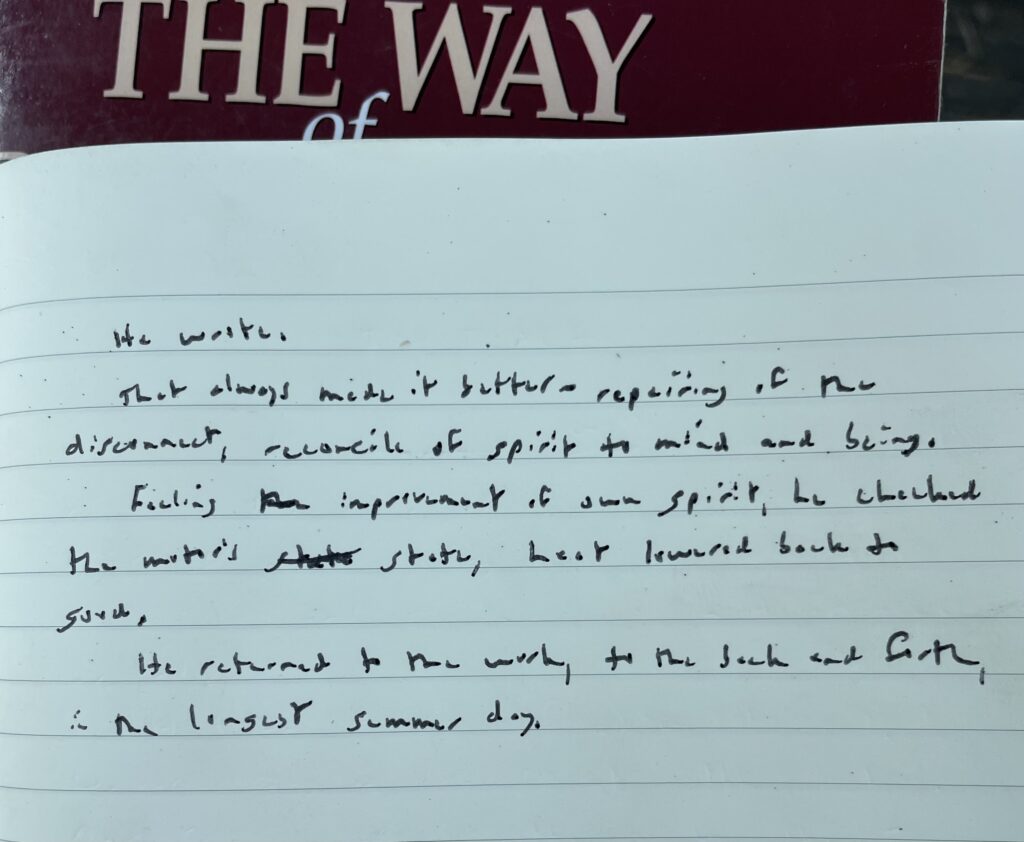 THE WAY
of
He wrote.
That always made it better - repairing of the
disconnect, reconcile of spirit to mind and being.
Feeling the improvement of own spirit, he checked
the motor's state state, heat lowered back to
good.
He returned to the work, to the back and forth,
in the longest summer day.